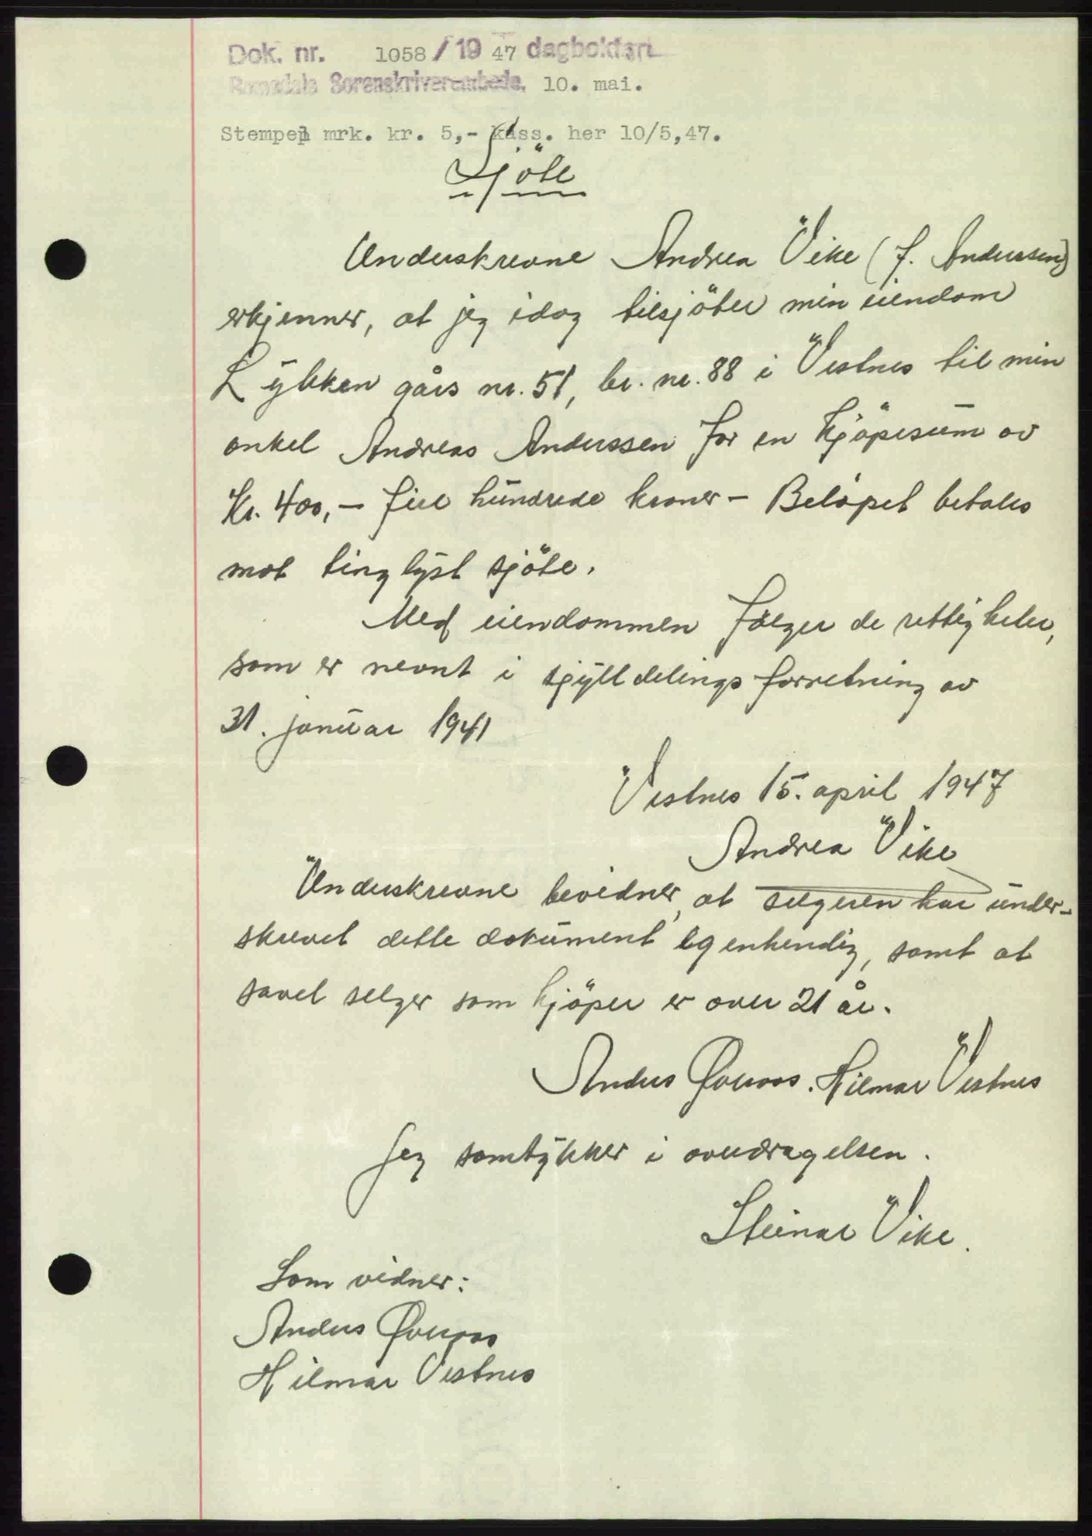 Dok. nr. 1058 / 19 47 dagbokført
Romsdals Sorenskriverembede, 10. mai.
Stempel mrk. kr. 5,- kass. her 10/5,47.
Sjöte
Underskrevne Andrea Vike (f. Anderssen)
erkjenner, at jeg idag tilsjöter min eiendom
Lykken gårs nr. 51, br. nr. 88 i Vestnes til min
onkel Andreas Anderssen for en kjöpesum av
Kr. 400,- fire hundrede kroner - Belöpet betales
mot tinglyst sjöte.
Med eiendommen fölger de rettigheter,
som er nevnt i sjylddelings forretning av
31. januar 1941
Vestnes 15. april 1947
Andrea Vike
Underskrevne bevidner, at selgeren har under-
skrevet dette dokument egenhendig, samt at
savel selger som kjöper er over 21 år.
Anders Øveraas. Hilmar Vestnes
Jeg samtykker i overdragelsen.
Steinar Vike.
Som vidner:
Anders Øveraas
Hilmar Vestnes